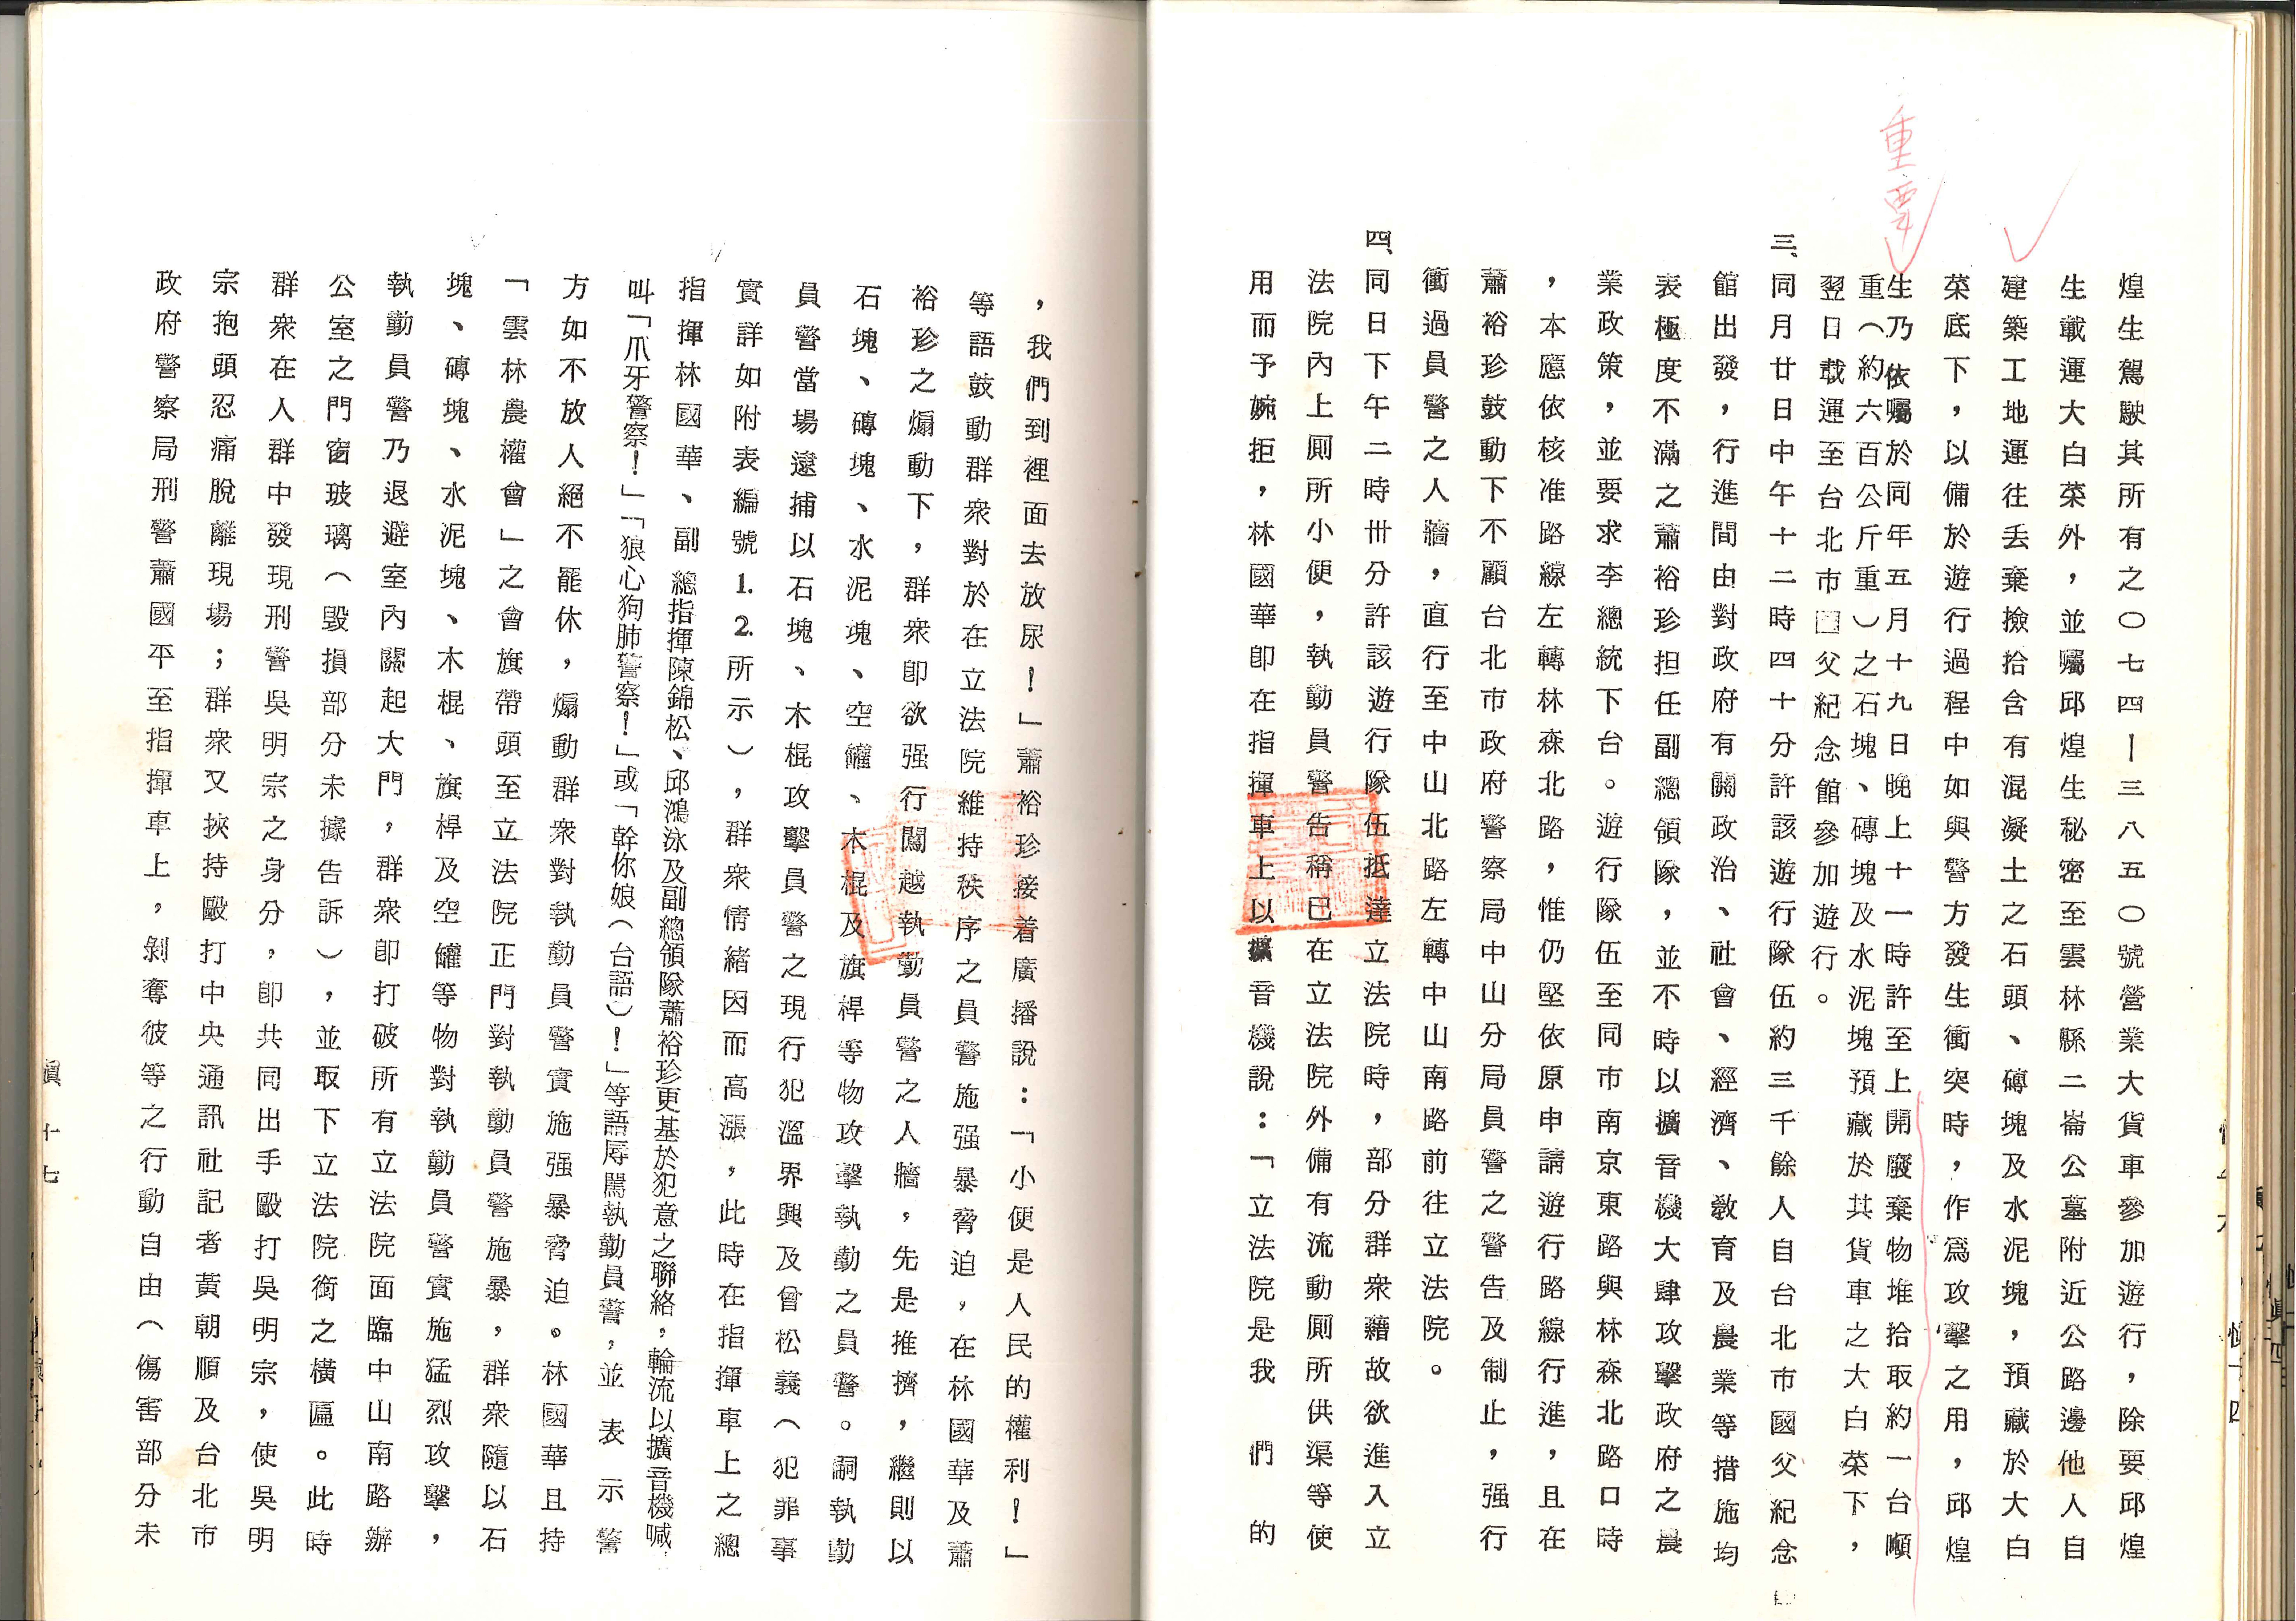 重要
煌生駕駛其所有之〇七四－三八五〇號營業大貨車參加遊行，除要邱煌
生載運大白菜外，並囑邱煌生秘密至雲林縣二崙公墓附近公路邊他人自
建築工地運往丟棄撿拾含有混凝土之石頭、磚塊及水泥塊，預藏於大白
菜底下，以備於遊行過程中如與警方發生衝突時，作為攻擊之用，邱煌
生乃依囑於同年五月十九日晚上十一時許至上開廢棄物堆拾取約一台噸
重（約六百公斤重）之石塊、磚塊及水泥塊預藏於其貨車之大白菜下，
翌日載運至台北市國父紀念館參加遊行。
三、同月廿日中午十二時四十分許該遊行隊伍約三千餘人自台北市國父紀念
館出發，行進間由對政府有關政治、社會、經濟、教育及農業等措施均
表極度不滿之蕭裕珍担任副總領隊，並不時以擴音機大肆攻擊政府之農
業政策，並要求李總統下台。遊行隊伍至同市南京東路與林森北路口時
，本應依核准路線左轉林森北路，惟仍堅依原申請遊行路線行進，且在
蕭裕珍鼓動下不顧台北市政府警察局中山分局員警之警告及制止，强行
衝過員警之人牆，直行至中山北路左轉中山南路前往立法院。
四、同日下午二時卅分許該遊行隊伍抵達立法院時，部分群衆藉故欲進入立
法院內上厠所小便，執勤員警告稱已在立法院外備有流動厠所供渠等使
用而予婉拒，林國華卽在指揮車上以擴音機說：「立法院是我們的
，我們到裡面去放尿！」蕭裕珍接着廣播說：「小便是人民的權利！」
等語鼓動群衆對於在立法院維持秩序之員警施强暴脅迫，在林國華及蕭
裕珍之煽動下，群衆卽欲强行闖越執勤員警之人牆，先是推擠，繼則以
石塊、磚塊、水泥塊、空罐、木棍及旗桿等物攻擊執勤之員警。嗣執勤
員警當場逮捕以石塊、木棍攻擊員警之現行犯溫界興及曾松義（犯罪事
實詳如附表編號1.2.所示），群衆情緒因而高漲，此時在指揮車上之總
指揮林國華、副總指揮陳錦松、邱鴻泳及副總領隊蕭裕珍更基於犯意之聯絡，輪流以擴音機喊
叫「爪牙警察！」「狼心狗肺警察！」或「幹你娘（台語）！」等語辱駡執勤員警，並表示警
方如不放人絕不罷休，煽動群衆對執勤員警實施强暴脅迫。林國華且持
「雲林農權會」之會旗帶頭至立法院正門對執勤員警施暴，群衆隨以石
塊、磚塊、水泥塊、木棍、旗桿及空罐等物對執勤員警實施猛烈攻擊，
執勤員警乃退避室內關起大門，群衆卽打破所有立法院面臨中山南路辦
公室之門窗玻璃（毀損部分未據告訴），並取下立法院銜之橫匾。此時
群衆在人群中發現刑警吳明宗之身分，卽共同出手毆打吳明宗，使吳明
宗抱頭忍痛脫離現場；群衆又挾持毆打中央通訊社記者黃朝順及台北市
政府警察局刑警蕭國平至指揮車上，剝奪彼等之行動自由（傷害部分未
十七